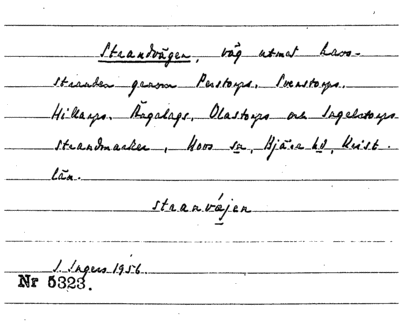 Strandvägen, väg utmed havs-
stranden genom Perstorps, Svenstorps,
Hillarps, Ängalags, Olastorps och Ingelstorps
strandmarker, Hovs sn, Bjäre hd, Krist.
län.
stranvájen
I. Ingers 1956.
Nr 5323.